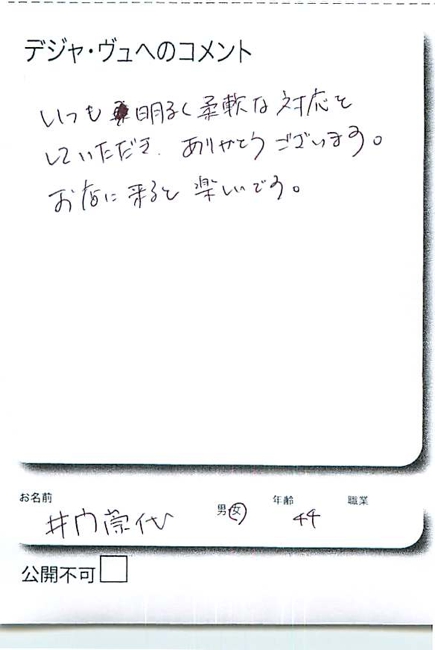 デジャ・ヴュへのコメント
いつも 明るく柔軟な対応を
していただき、ありがとうございます。
お店に来ると楽しいです。
お名前 男・女 年齢 職業
井口崇代 44
公開不可